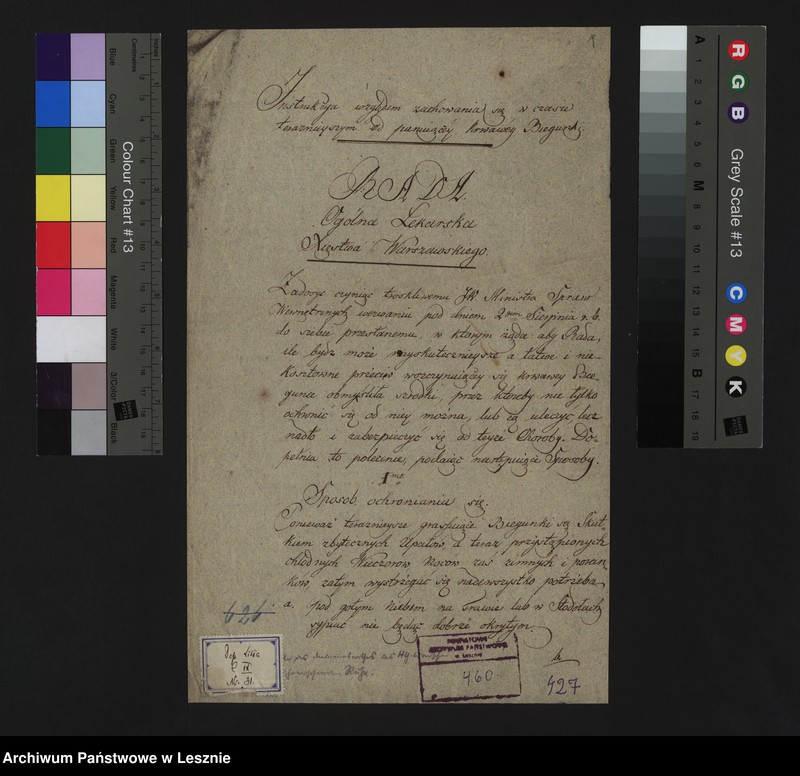 Instrukcya względem zachowania się w czasie
teraznieyszym od panuiącéy krwawéy Biegunki.
RADA
Ogólna Lekarska
Xięstwa Warszawskiego.
Zadosyc czyniąc troskliwemu JW Ministra Spraw
Wewnętrznych wezwaniu pod dniem 2 Sierpnia r. b.
do siebie przesłanemu, w którym żąda aby Rada,
ile bydź może nayskutecznieysze a tatwe i nie-
kosztowne przeciw wszczynaiącéy się krwawéy Bie-
gunce obmyśliła szrodki, przez któreby nie tylko
ochronić się od niey można, lub ią uleczyc, lecz
nadto i zabezpieczyć się od teyże Choroby. Do-
pełnia to polecenie, podaiąc następuiące Sposoby.
1mo
Sposob ochroniania się.
Ponieważ teraznieysze grassuiące Biegunki są Skut-
kiem zbytecznych Upałów, a teraz przystąpionych
chłodnych Wieczorow Nocow zaś zimnych i poran-
kow, zatym wystrzegać się nadewszystko potrzeba
a. pod gołym Niebem na trawie lub w Stodołach
sypiać nie będąc dobrze okrytym.
626
Dep. Lissa
C IX
Nr. 31.
POWIATOWE
ARCHIWUM PAŃSTWOWE
w Lesznie
460
b
427
Colour Chart #13
Blue
Cyan
Green
Yellow
Red
Magenta
White
3/Color
Black
Centimetres
Inches
Grey Scale #13
R
G
B
C
M
Y
K
A 1 2 3 4 5 6 M 8 9 10 11 12 13 14 15 B 17 18 19
Archiwum Państwowe w Lesznie